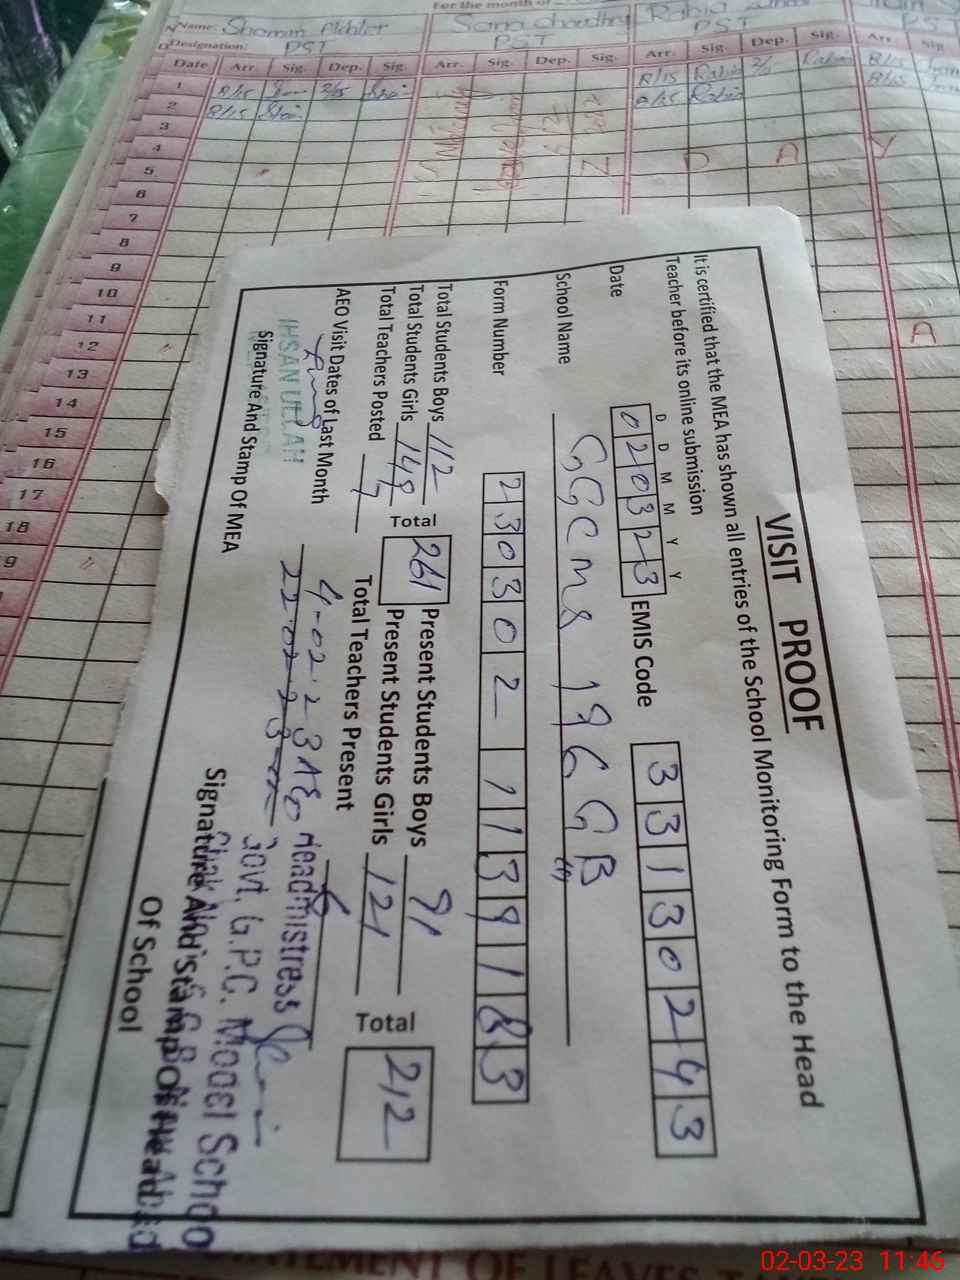 For the month of
Name: Shamim Akhter
Designation: PST PST PST
Date Arr. Sig. Dep. Sig. Arr. Sig. Dep. Sig. Arr. Sig. Dep. Sig. Arr. Sig.
1 8/15 2/15 8/15 Rabia Rabia 8/15
2 8/15 8/15 Rabia 8/15
3
4
5
6
7
8
9
10
11
12
13
14
15
16
17
18
9
VISIT PROOF
It is certified that the MEA has shown all entries of the School Monitoring Form to the Head
Teacher before its online submission
D D M M Y Y
Date 020323 EMIS Code 33130243
School Name GGCMS 196 GB
Form Number 230302 1139183
Total Students Boys 112 Total 261 Present Students Boys 91 Total 212
Total Students Girls 149 Present Students Girls 121
Total Teachers Posted 7 Total Teachers Present 6
AEO Visit Dates of Last Month 4-02-23 AEO
22-02-23
IHSAN ULLAH
Signature And Stamp Of MEA
Headmistress
Govt. G.P.C. Model School
Signature And Stamp Of Head
Of School
STATEMENT OF LEAVES
02-03-23 11:46